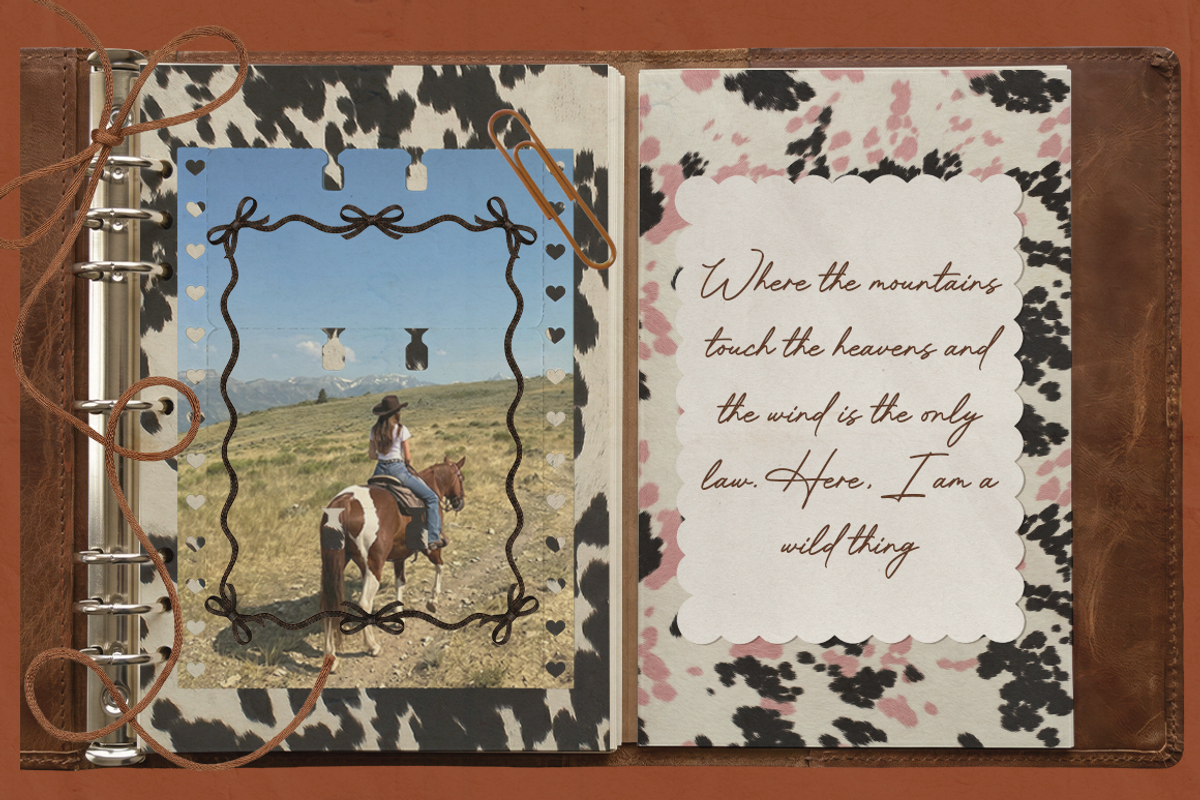 Where the mountains
touch the heavens and
the wind is the only
law. Here, I am a
wild thing